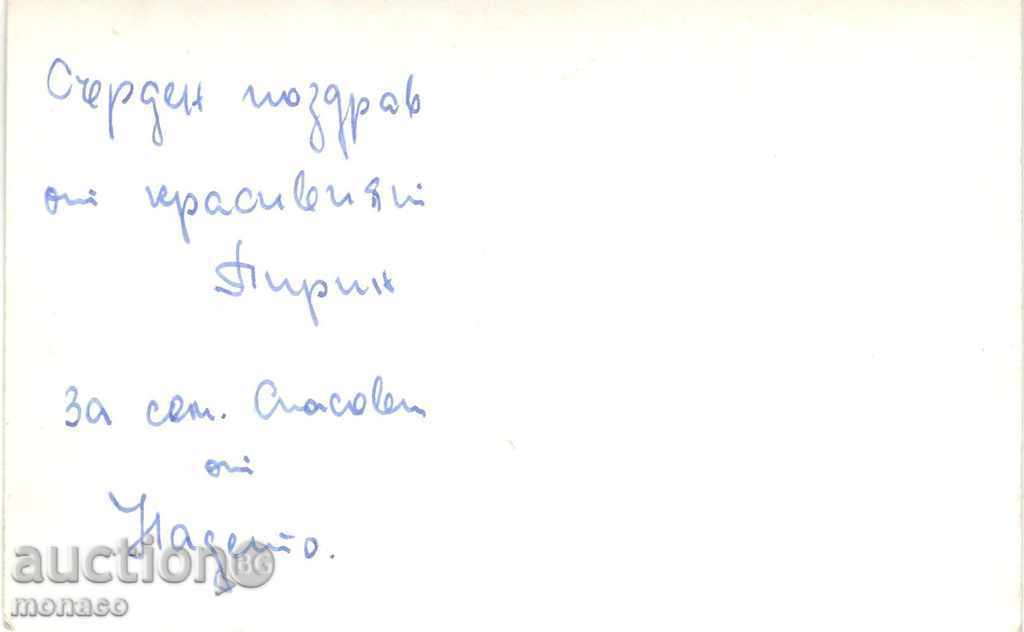 Сърден поздрав
от красивият
Пирин
За сем. Спасови
от
Надето.
auction BG
monaco